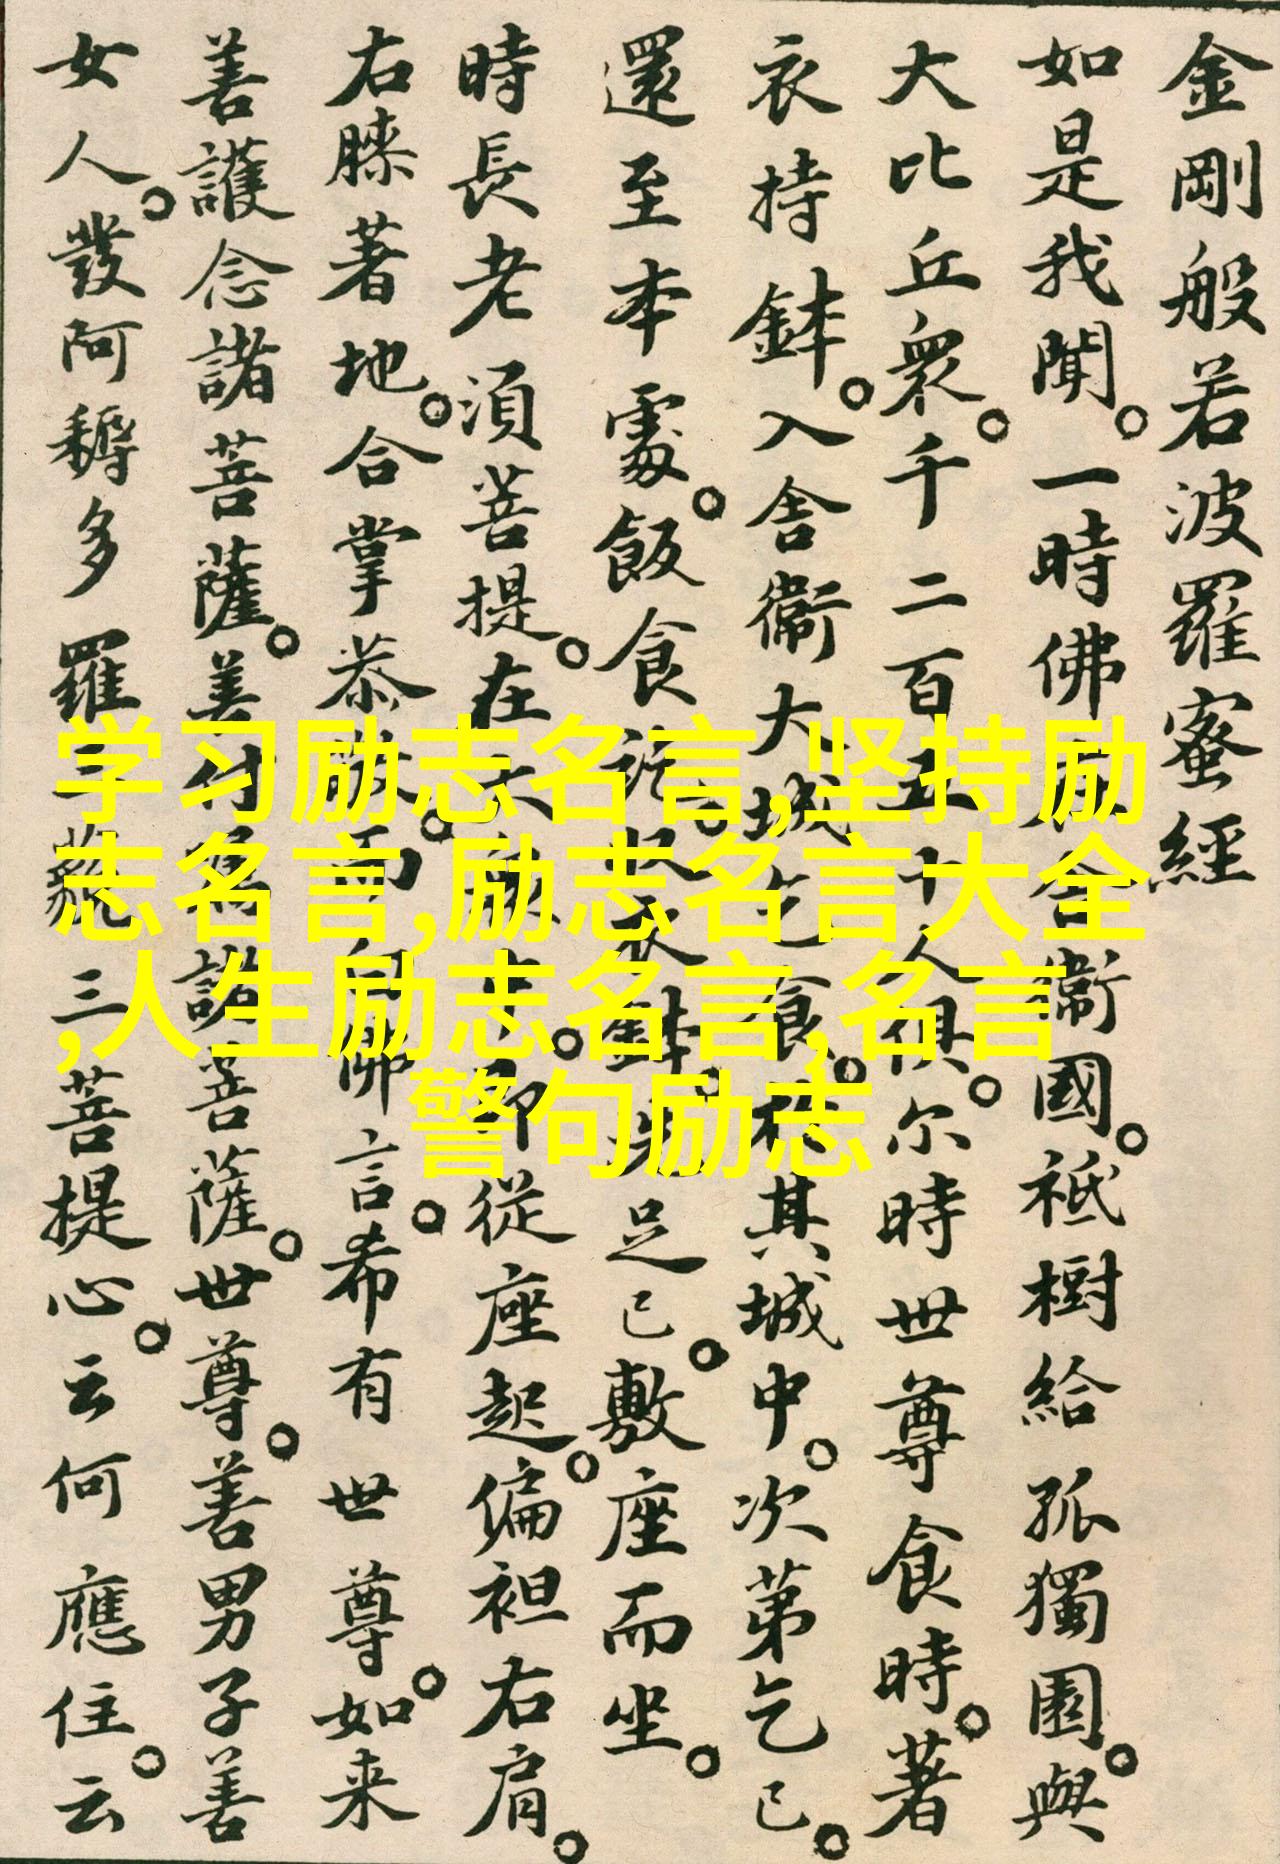 金剛般若波羅蜜經
如是我聞。一時佛在舍衞國。祇樹給孤獨園。與
大比丘衆。千二百五十人俱。尔時世尊食時。著
衣持鉢。入舍衞大城乞食。於其城中。次第乞已。
還至本處。飯食訖。收衣鉢。洗足已。敷座而坐。
時長老須菩提。在大衆中。即從座起。偏袒右肩。
右膝著地。合掌恭敬。而白佛言。希有世尊。如来
善護念諸菩薩。善付諸菩薩。世尊。善男子善
女人。發阿耨多羅三藐三菩提心。云何應住。云
学习励志名言,坚持励
志名言,励志名言大全
,人生励志名言,名言
警句励志